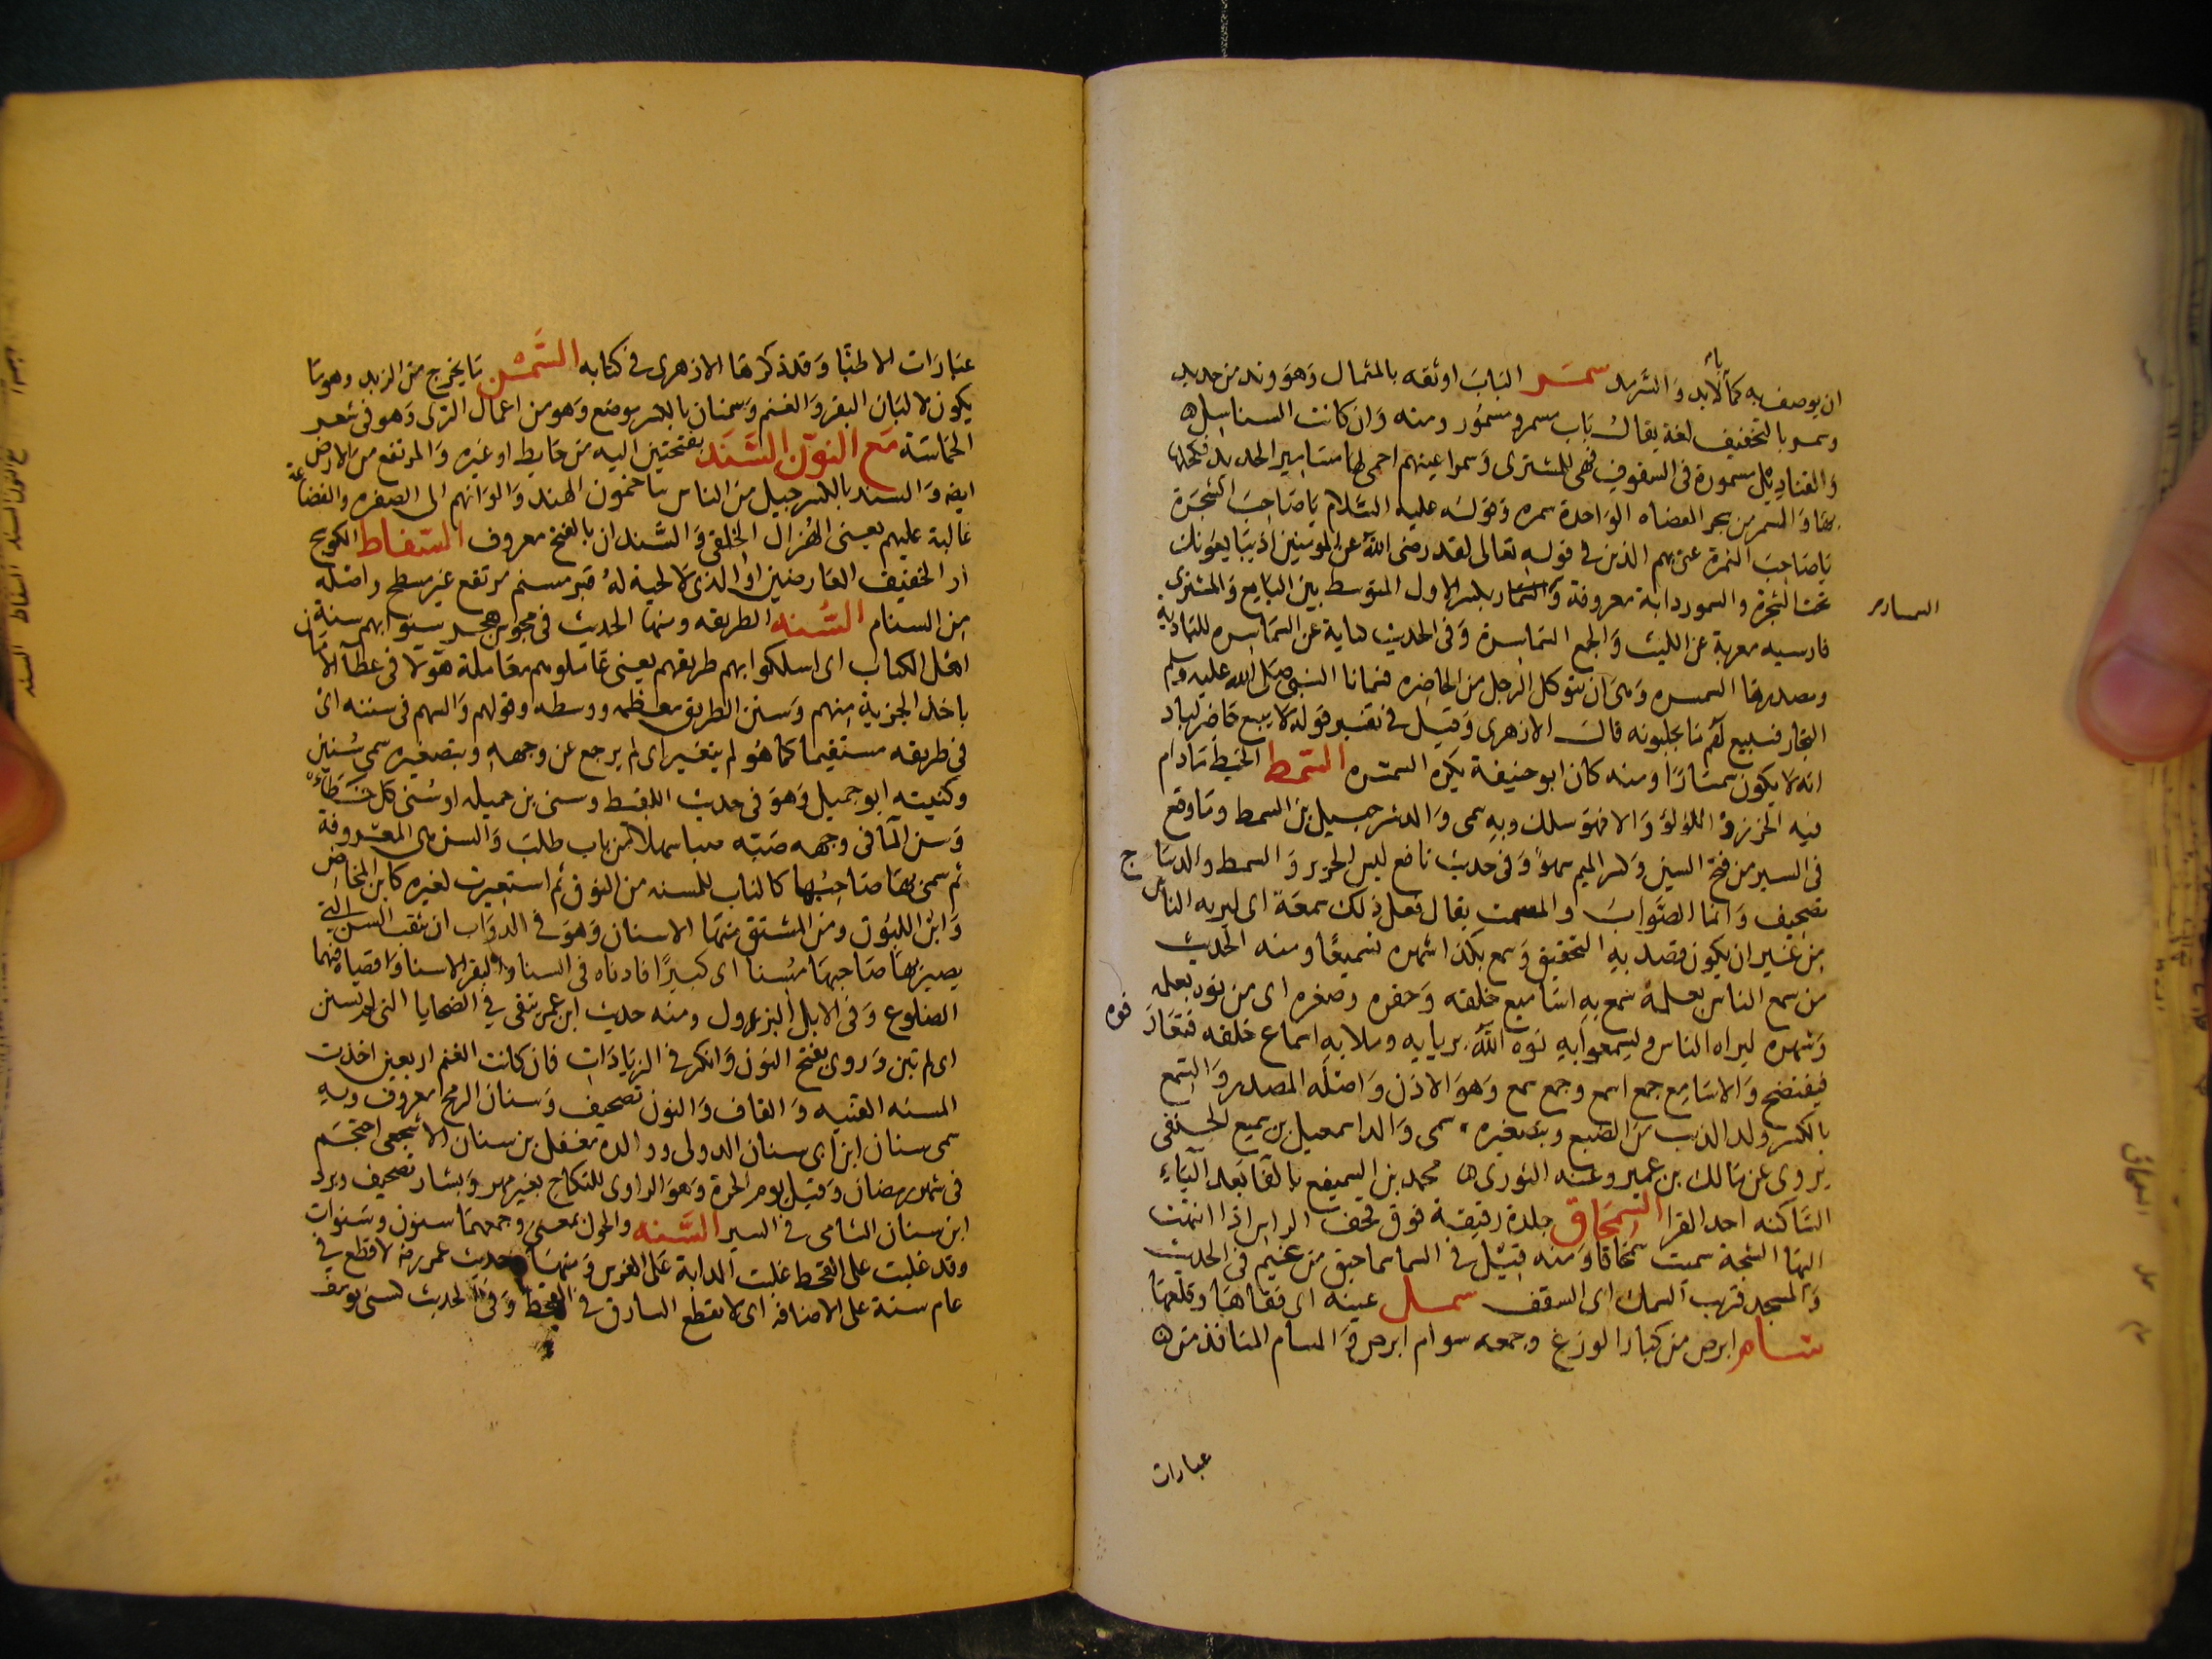 ان يوصف به كما لابد والسرمد سمر الباب اوثقه بالمسمار وهو وتد من حديد
وسمر بالتخفيف لغة يقال باب مسمر ومسمور ومنه وان كانت السلاسل
والقناديل مسمورة في السقوف فهي للمشترى وسمر اعينهم احمى لها مسامير الحديد فكحلهم
بها والسمر من شجر العضاه الواحدة سمره وقوله عليه السلام يا صاحب الشجرة
يا صاحب السمرة عنى بهم الذين في قوله تعالى لقد رضى الله عن المومنين اذ يبايعونك
تحت الشجرة والسمور دابة معروفة والسمسار بكسر الاول المتوسط بين البايع والمشترى
فارسيه معربة عن الليث والجمع السماسرة وفي الحديث كناية عن السماسره
ومصدرها السمسره وهي ان يتوكل الرجل من الحاضره فسمانا النبي صلى الله عليه وسلم
التجار فيبيع لهم ما يجلبونه قال الازهرى وقيل في تفسير قوله لا يبيع حاضر لباد
انه لا يكون سمسارا ومنه كان ابو حنيفة يكره السمسره السمط الخيط مادام
فيه الخرز او اللؤلؤ والا فهو سلك وبه سمى والد شرحبيل بن السمط وما وقع
في السير من فتح السين وكسر الميم سهو وفي حديث نافع لبس الحرير والسمط والديباج
تصحيف وانما الصواب والمصمت يقال فعل ذلك سمعة اى ليريه الناس
من غير ان يكون قصد به التحقيق وسمع بكذا شهره تسميعا ومنه الحديث
من سمع الناس بعمله سمع به اسامع خلقه وحقره وصغره اى من نوه بعمله
وشهره ليراه الناس وليسمعوا به نوه الله بريايه وملا به اسماع خلقه فتعارفوه
فيفتضح والاسامع جمع اسمع وجمع سمع وهو الاذن واصله المصدر والسمع
بالكسر ولد الذيب من الضبع وبتصغيره سمى والد اسمعيل بن سميع الحنفى
يروى عن مالك بن عمير وعنه الثورى محمد بن السميفع بالفا بعد الياء
الساكنه احد القرا السمحاق جلدة رقيقة فوق قحف الراس اذا انتهت
اليها الشجة سميت سمحاقا ومنه قيل في السما سماحيق من غيم في الحديث
والمسجد قريب السمك اى السقف سمل عينه اى فقاها وقلعها
سام ابرص من كبار الوزغ وجمعه سوام ابرص والمسام المنافذ من
عبارات
السمسار
عبارات الاطبا وقد ذكرها الازهرى في كتابه السمن ما يخرج من الزبد وهو ما
يكون لالبان البقر والغنم وسمنان بالكسر موضع وهو من اعمال الرى وهو في شعر
الحماسة مع النون السند بفتحتين اليه من حايط او غيره والمرتفع من الارض
ايضا والسند بالكسر جيل من الناس يتاخمون الهند والوانهم الى الصفره والقضافة
غالبة عليهم يعنى الهزال الخلقى والسندان بالفتح معروف السناط الكوسج
او الخفيف العارضين او الذى لا لحية له قبر مسنم مرتفع غير مسطح واصله
من السنام السنه الطريقه ومنها الحديث في مجوس هجر سنوا بهم سنة
اهل الكتاب اى اسلكوا بهم طريقهم يعنى عاملوهم معاملة هولا في عطا الامان
باخذ الجزية منهم وسنن الطريق معظمه ووسطه وقولهم والسهم في سننه اى
في طريقه مستقيما كما هو لم يتغير اى لم يرجع عن وجهه وبتصغيره سمى سنين
وكنيته ابو جميل وهو في حديث اللقيط وسنى بن جميله او سنى كل خطا
وسن الما في وجهه صبه صبا سهلا من باب طلب والسن هى المعروفة
ثم سمى بها صاحبها كالناب للمسنه من النوق ثم استعيرت لغيره كابن المخاض
وابن اللبون ومن المشتق منها الاسنان وهو في الدواب ان تنبت السن التي
يصير بها صاحبها مسنا اى كبيرا فادناه في الشا والبقر الاسنا واقصاه فيهما
الصلوغ وفي الابل البزول ومنه حديث ابن عمر يتقى في الضحايا التى لم تسنن
اى لم تثن وروى بفتح النون وانكر في الزيادات فان كانت الغنم اربعين اخذت
المسنه الفتيه والقاف والنون تصحيف وسنان الرمح معروف وبه
سمى سنان ابن ابى سنان الدولى ووالده معقل بن سنان الاشجعى احتجم
في شهر رمضان وقتل يوم الحرة وهو الراوى للنكاح بغير مهر وبشار تصحيف وبرد
ابن سنان الشامى في السير السنه والحول بمعنى وجمعها سنون وسنوات
وقد غلبت على القحط غلبت الدابة على الفرس ومنها حديث عمر رضه لا قطع في
عام سنة على الاضافه اى لا يقطع السارق في القحط وفي الحديث كسنى يوسف